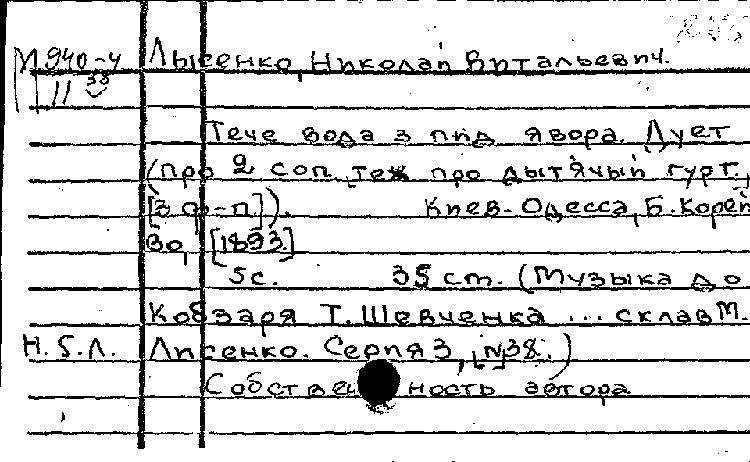 М 940-4 Лысенко, Николай Витальевич.
11 33
Тече вода з пид явора. Дует
(про 2 соп. теж про дытячый гурт,
[з ф-п]). Киев-Одесса, Б. Корей
во, [1893]
5с. 35 см. (Музыка до
Кобзаря Т. Шевченка ... склав М.
Н.Б.Л. Лисенко. Серия 3, [№38.)
Собственность автора